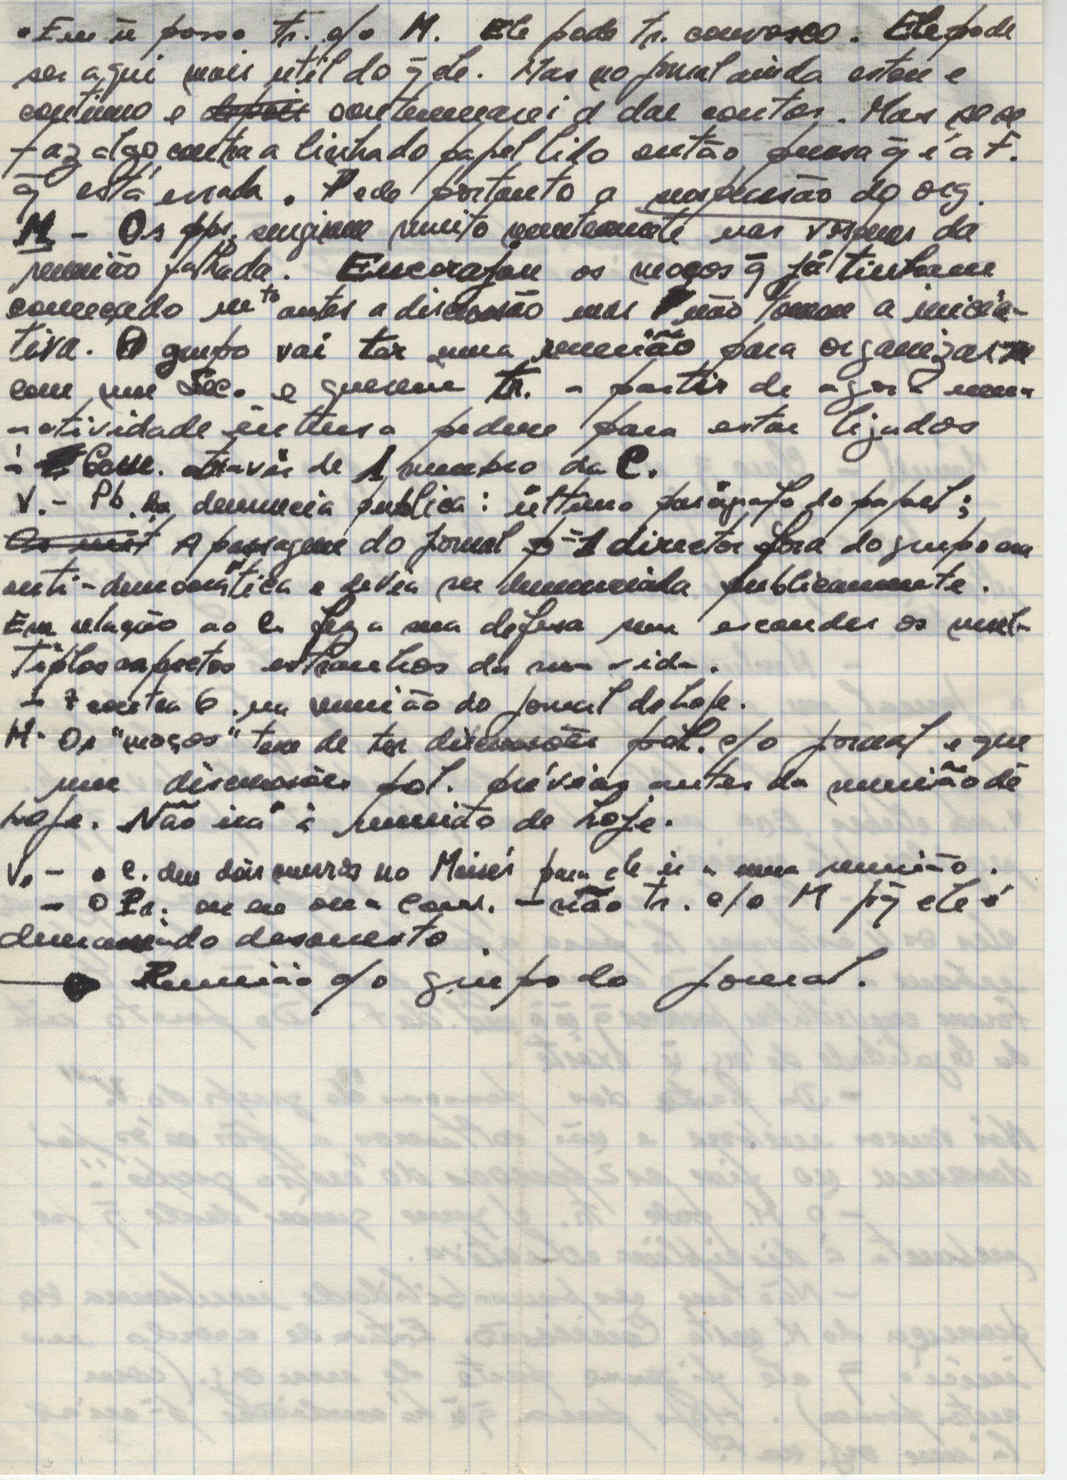 • Eu ñ posso tr. c/o M. Ele pode tr. convosco. Ele pode
ser aqui mais util do q̃ ele. Mas no jornal ainda estou e
continuo e continuarei a dar contas. Mas se se
faz algo contra a linha do papel lido então pensa q̃ é a F.
q̃ está errada. Pede portanto a suspensão do org.
M - Os pbs. surgiram muito nas vésperas da
reunião passada. Encorajou os moços q̃ já tinham
começado mto antes a discussão mas não tomou a inicia-
tiva. O grupo vai ter uma reunião para organizar
com um Sec. e querem tr. a partir de agora numa
actividade intensa pedem para estar ligados
à Com. através de 1 membro da C.
V. - Pb. da denuncia publica: último parágrafo do papel;
A passagem do jornal p- 1 director fora do grupo era
anti-democrática e devia ser denunciada publicamente.
Em relação ao C. fez a sua defesa sem esconder os mul-
tiplos aspectos estranhos da sua vida.
- 7 contra 6 na reunião do jornal de hoje.
M- Os "moços" tem de ter discussões pol. c/o jornal e quer
um discussões pol. prévias antes da reunião de
hoje. Não irá à reunião de hoje.
V. - o C. deu dois murros no Moisés para ele ir a uma reunião.
- O Pr. - não tr. c/o M pq̃ ele é
demasiado desonesto.
→ Reunião c/o grupo do jornal.